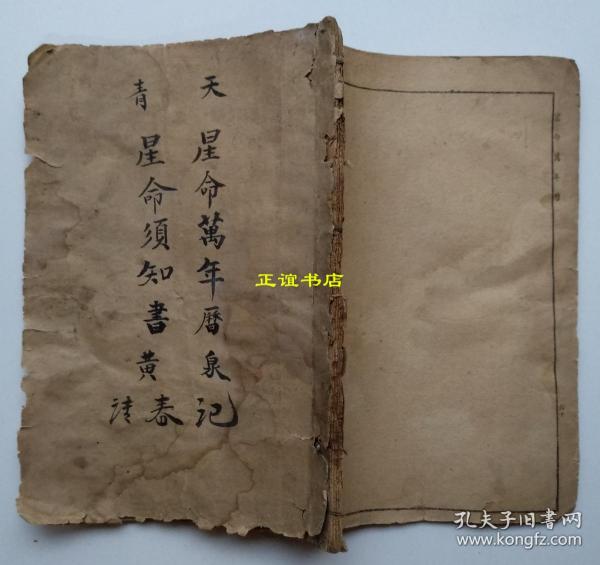 天
星命萬年曆泉記
青
星命須知書黃春
正谊书店
孔夫子旧书网
www.kongfz.com